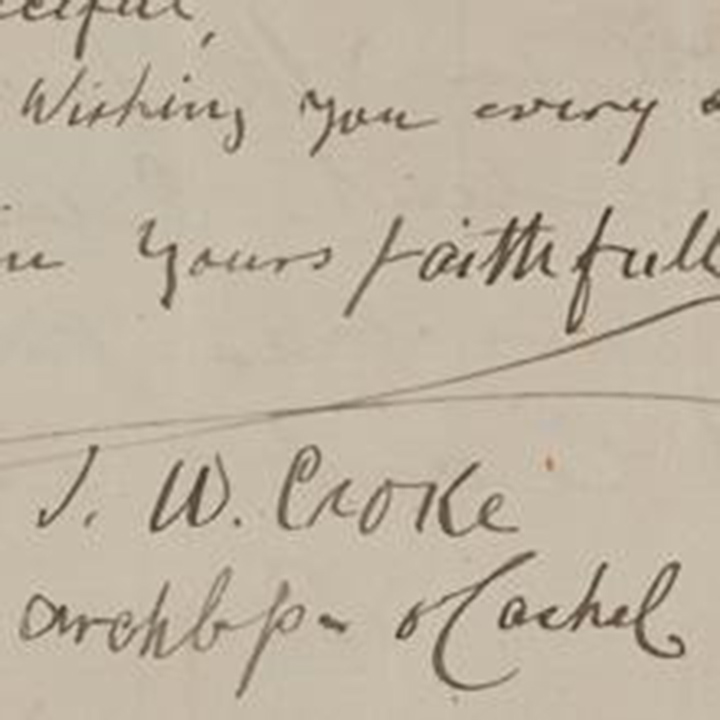 Wishing you every
Yours faithfull
T. W. Croke
Archbp of Cashel